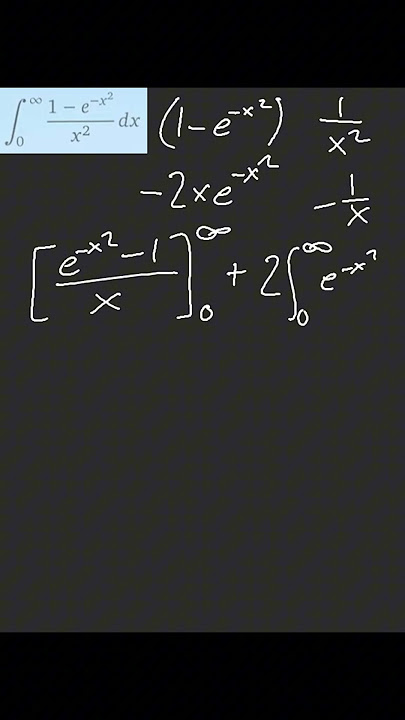 ∫₀^∞ (1 − e^(−x²))/x² dx (1−e^(−x²)) 1/x²
−2xe^(−x²) −1/x
[(e^(−x²) −1)/x]₀^∞ + 2∫₀^∞ e^(−x²)